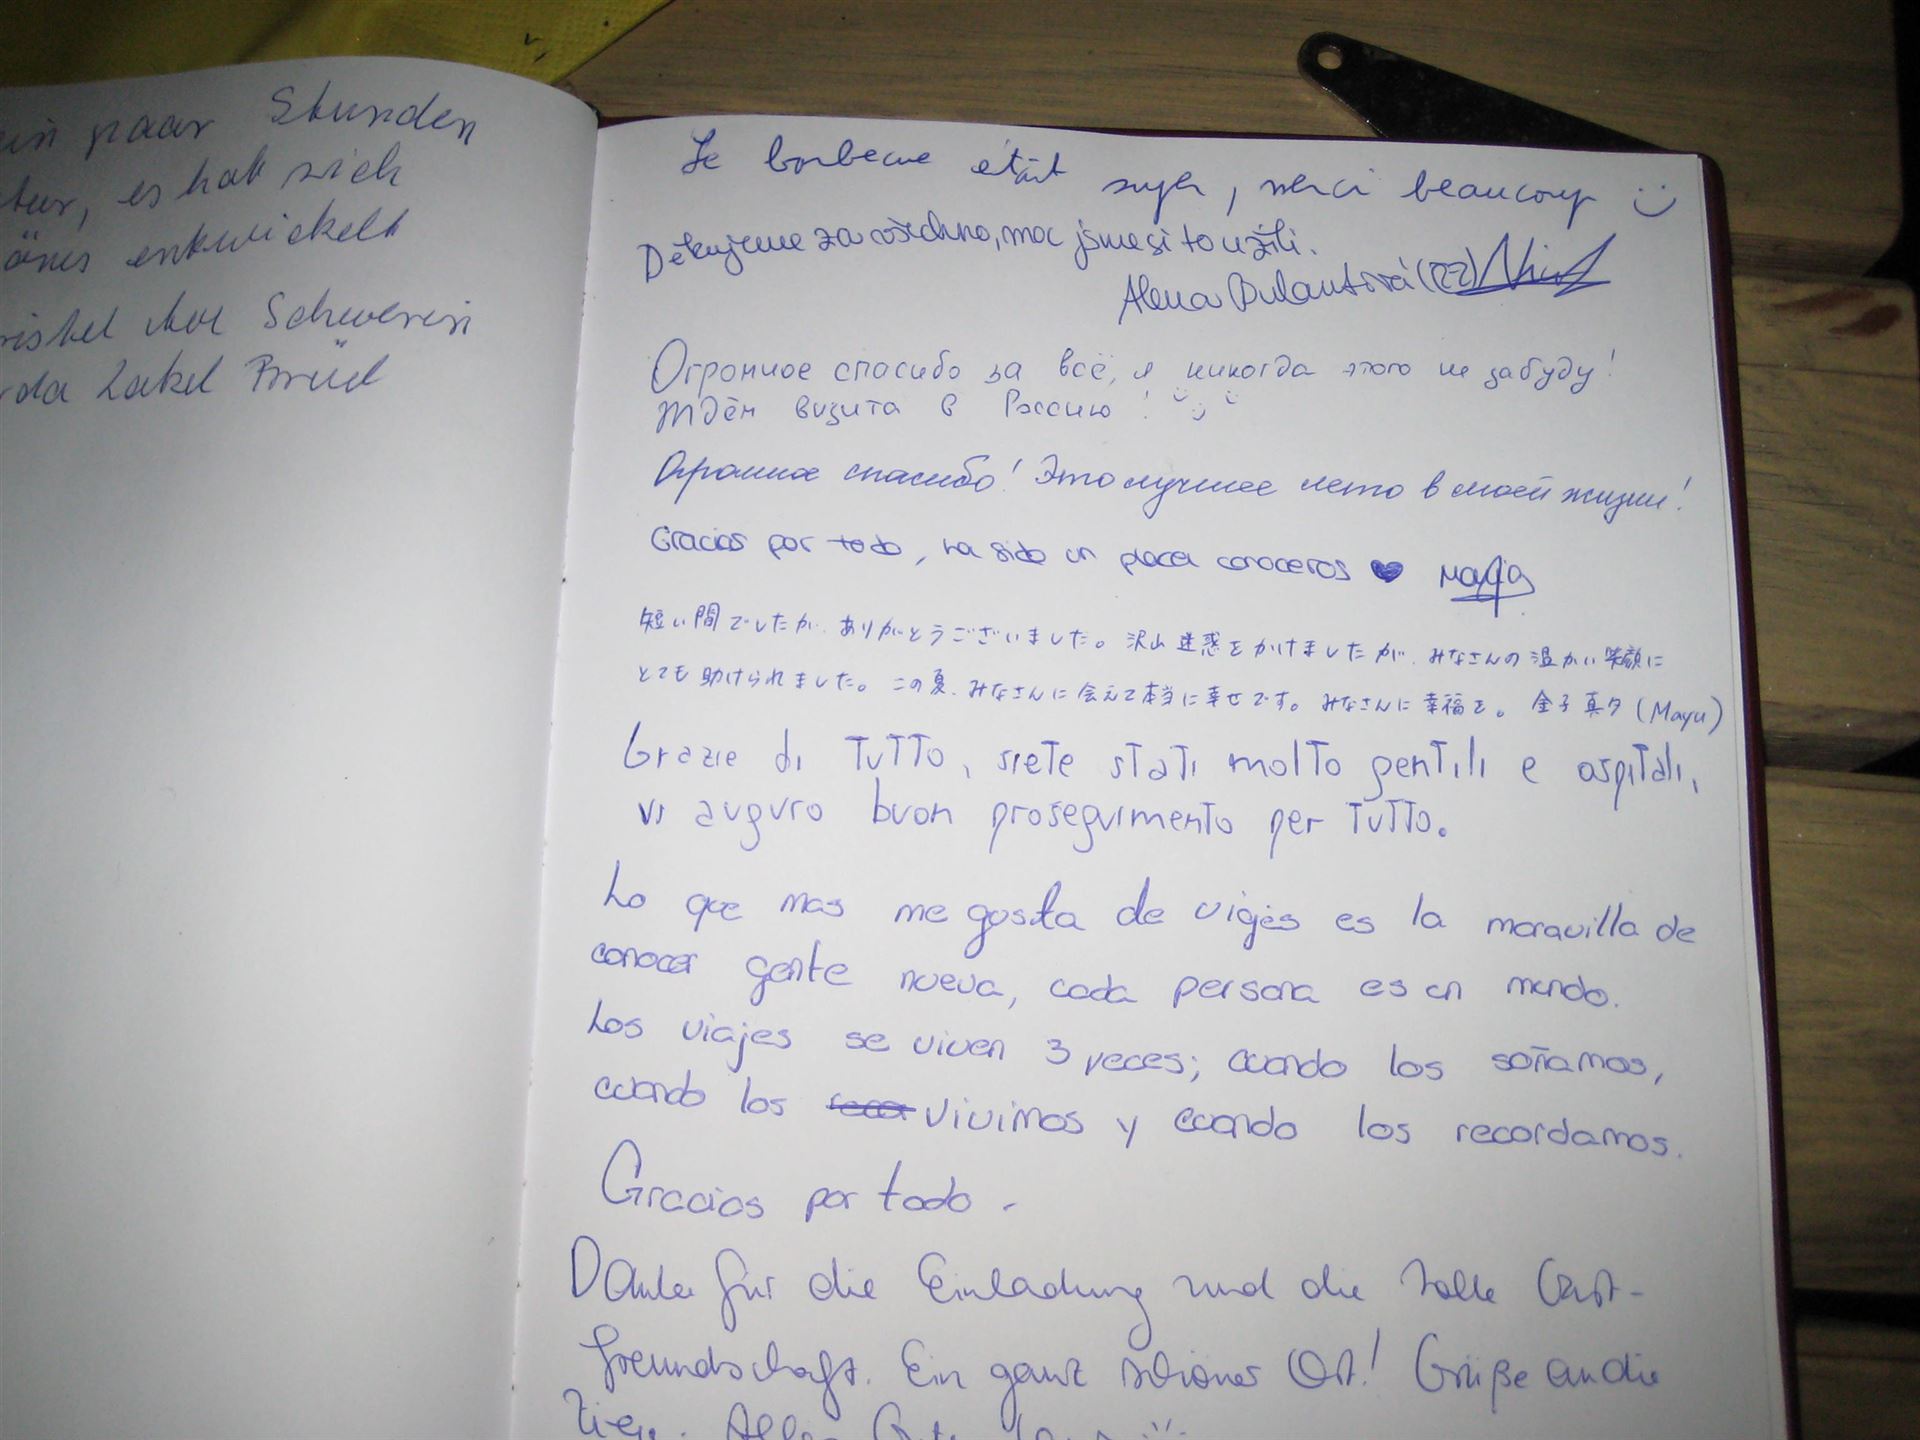 paar Stunden
es hat sich
entwickelt
Schwerin
Brüel
Le barbecue était super, merci beaucoup :)
Děkujeme za všechno, moc jsme si to užili.
Alena Bulantová (CZ)
Огромное спасибо за всё, я никогда этого не забуду!
Ждём визита в Россию!
Огромное спасибо! Это лучшее лето в моей жизни!
Gracias por todo, ha sido un placer conoceros ♥ María
短い間でしたが、ありがとうございました。沢山迷惑をかけましたが、みなさんの温かい笑顔に
とても助けられました。この夏、みなさんに会えて本当に幸せです。みなさんに幸福を。 金子真夕 (Mayu)
Grazie di tutto, siete stati molto gentili e ospitali,
vi auguro buon proseguimento per tutto.
Lo que mas me gosta de viajes es la maravilla de
conocer gente nueva, cada persona es un mundo.
Los viajes se viven 3 veces; cuando los soñamos,
cuando los vivimos y cuando los recordamos.
Gracias por todo.
Danke für die Einladung und die tolle Gast-
freundschaft. Ein ganz schöner Ort! Grüße an die